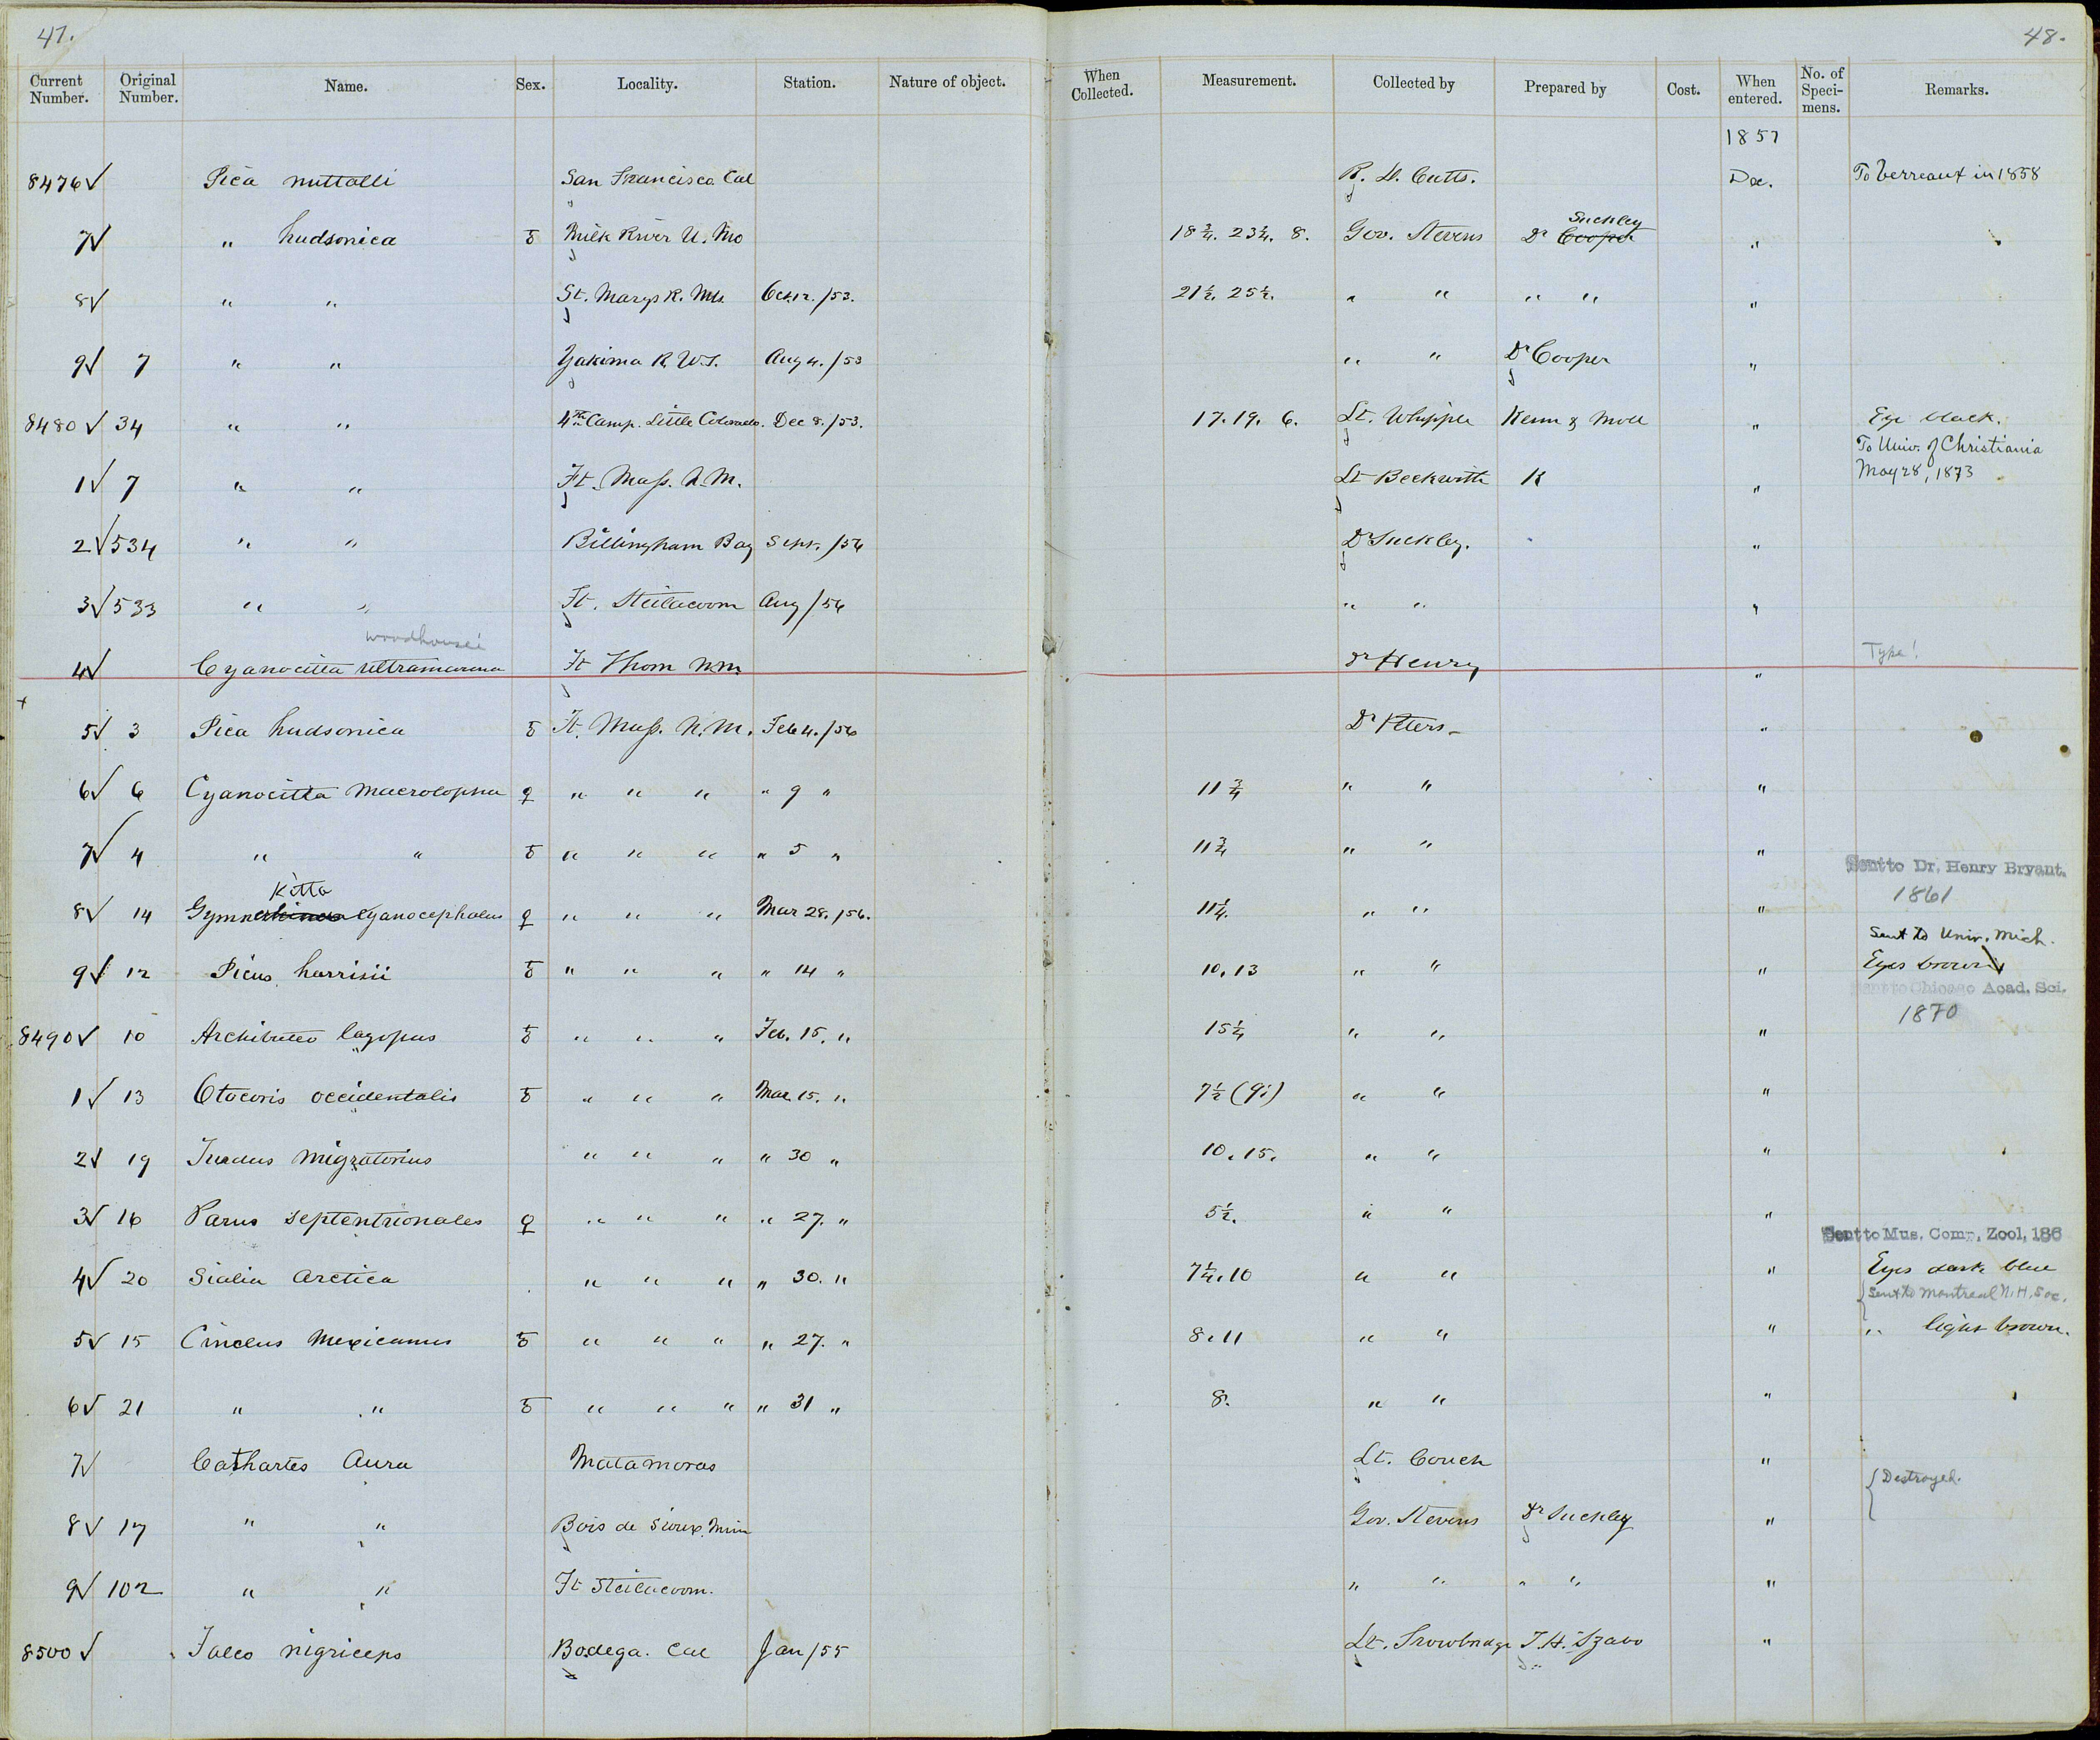 47.
48.
Current Number. Original Number. Name. Sex. Locality. Station. Nature of object. When Collected. Measurement. Collected by Prepared by Cost. When entered. No. of Speci- mens. Remarks.
1857
8476 √ Pica nuttalli San Francisco Cal R. D. Cutts. Dec. To Verreaux in 1858
Suckley
7 √ " hudsonica ♂ Milk River U. Mo 18 3/4. 23 1/4. 8. Gov. Stevens Dr Cooper "
8 √ " " St. Marys R. Mts Oct 12. /53. 21 1/2. 25 1/2. " " " " "
9 √ 7 " " Yakima R. W.T. Aug 4. /53 " " Dr Cooper "
8480 √ 34 " " 4th Camp. Little Colorado. Dec 8. /53. 17. 19. 6. Lt. Whipple Kenn & Moll " Eye black.
To Univ. of Christiania
1 √ 7 " " Ft. Mass. N. M. Lt Beckwith K " May 28, 1873
2 √ 534 " " Billingham Bay Sept. /56 Dr Suckley. "
3 √ 533 " " Ft. Steilacoom Aug /56 " " "
woodhousei
4 √ Cyanocitta ultramarina Ft Thorn N.M. Dr Henry " Type!
5 √ 3 Pica hudsonica ♂ Ft. Mass. N. M. Feb 4. /56 Dr Peters "
6 √ 6 Cyanocitta macrolopha ♀ " " " " 9 " 11 3/4 " " "
7 √ 4 " " ♂ " " " " 5 " 11 3/4 " " "
Sent to Dr. Henry Bryant.
Kitta
8 √ 14 Gymnorhinus Cyanocephalus ♀ " " " Mar 28. /56. 11 1/4. " " " 1861
Sent to Univ. Mich.
9 √ 12 Picus harrisii ♂ " " " " 14 " 10. 13 " " " Eyes brown
Sent to Chicago Acad. Sci.
1870
8490 √ 10 Archibuteo lagopus ♂ " " " Feb. 15. " 15 1/4 " " "
1 √ 13 Otocoris occidentalis ♂ " " " Mar. 15. " 7 1/2 (9?) " " "
2 √ 19 Turdus migratorius " " " " 30 " 10. 15. " " "
3 √ 16 Parus septentrionales ♀ " " " " 27. " 5 1/2. " " "
Sent to Mus. Comp. Zool, 186
4 √ 20 Sialia arctica " " " " 30. " 7 1/4. 10 " " " Eyes dark blue
Sent to Montreal N. H. Soc.
5 √ 15 Cinclus Mexicanus ♂ " " " " 27. " 8. 11 " " " " light brown.
6 √ 21 " " ♂ " " " " 31 " 8. " " "
7 √ Cathartes Aura Matamoras Lt. Couch "
Destroyed.
8 √ 17 " " Bois de Sioux. Minn Gov. Stevens Dr Suckley "
9 √ 102 " " Ft Steilacoom. " " " " "
8500 √ Falco nigriceps Bodega. Cal Jan /55 Lt. Trowbridge T. H. Szabo "